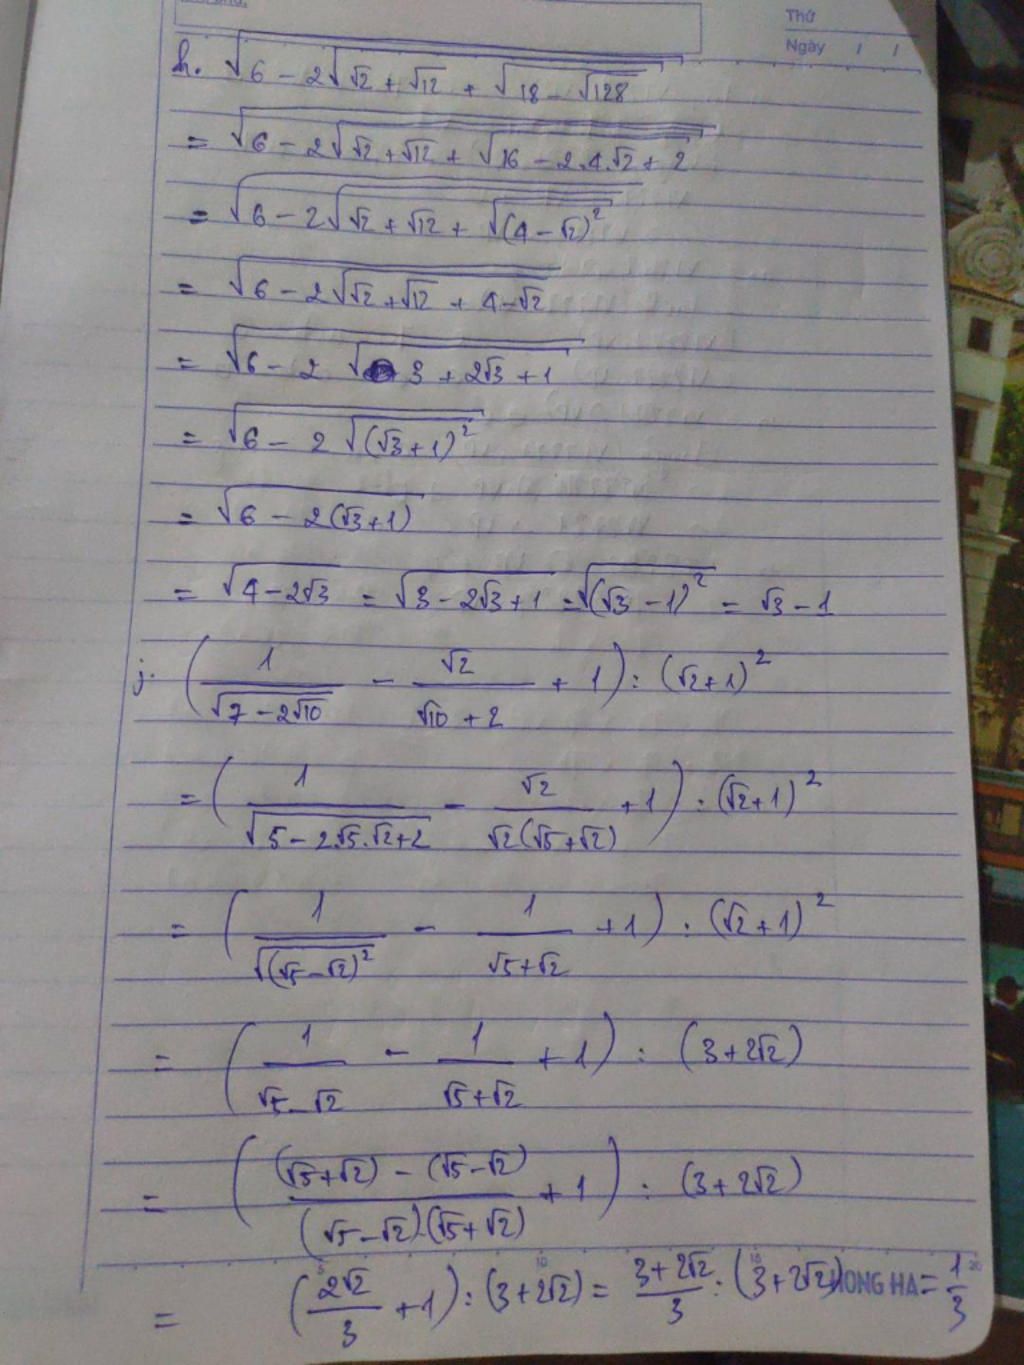 Thứ
Ngày / /
h. √(6 - 2√(√2 + √12 + √(18 - √128)))
= √(6 - 2√(√2 + √12 + √(16 - 2.4.√2 + 2)))
= √(6 - 2√(√2 + √12 + √((4 - √2)²)))
= √(6 - 2√(√2 + √12 + 4 - √2))
= √(6 - 2√(3 + 2√3 + 1))
= √(6 - 2√((√3 + 1)²))
= √(6 - 2(√3 + 1))
= √(4 - 2√3) = √(3 - 2√3 + 1) = √((√3 - 1)²) = √3 - 1
j. (1/√(7 - 2√10) - √2/(√10 + 2) + 1) : (√2 + 1)²
= (1/√(5 - 2.√5.√2 + 2) - √2/(√2(√5 + √2)) + 1) : (√2 + 1)²
= (1/√((√5 - √2)²) - 1/(√5 + √2) + 1) : (√2 + 1)²
= (1/(√5 - √2) - 1/(√5 + √2) + 1) : (3 + 2√2)
= (((√5 + √2) - (√5 - √2))/((√5 - √2).(√5 + √2)) + 1) : (3 + 2√2)
= (2√2/3 + 1) : (3 + 2√2) = (3 + 2√2)/3 : (3 + 2√2) = 1/3
ONG HA